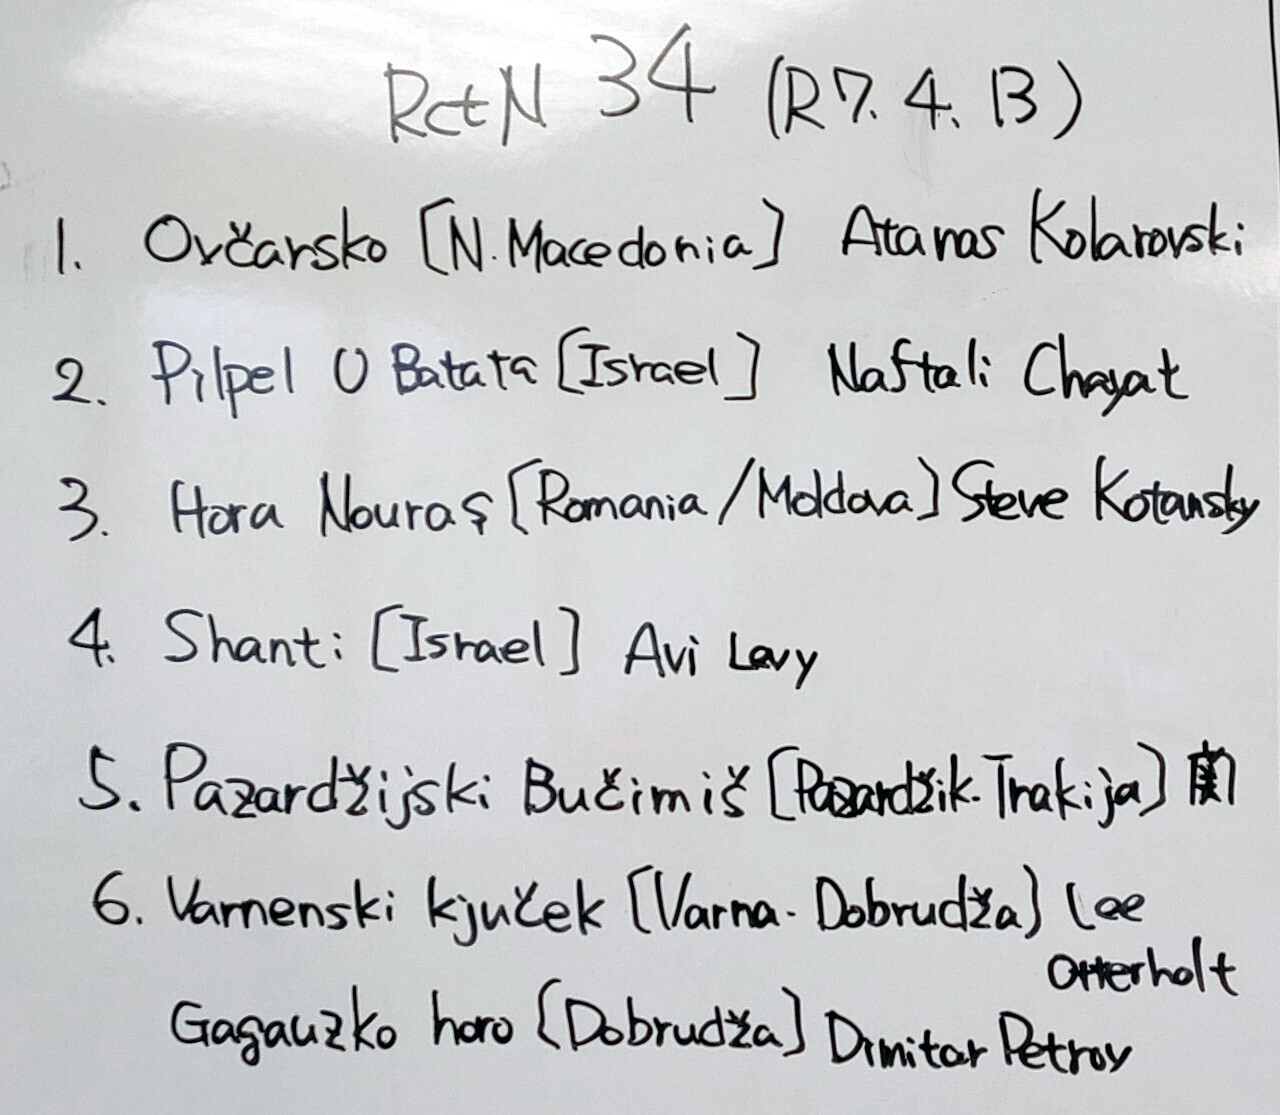 RctN 34 (R7.4.13)
1. Ovčarsko [N.Macedonia] Atanas Kolarovski
2. Pilpel U Batata [Israel] Naftali Chayat
3. Hora Nouraş [Romania/Moldova] Steve Kotansky
4. Shanti [Israel] Avi Levy
5. Pazardžijski Bučimiš [Pazardžik-Trakija]
6. Varnenski kjuček [Varna-Dobrudža] Lee
Otterholt
Gagauzko horo [Dobrudža] Dimitar Petrov